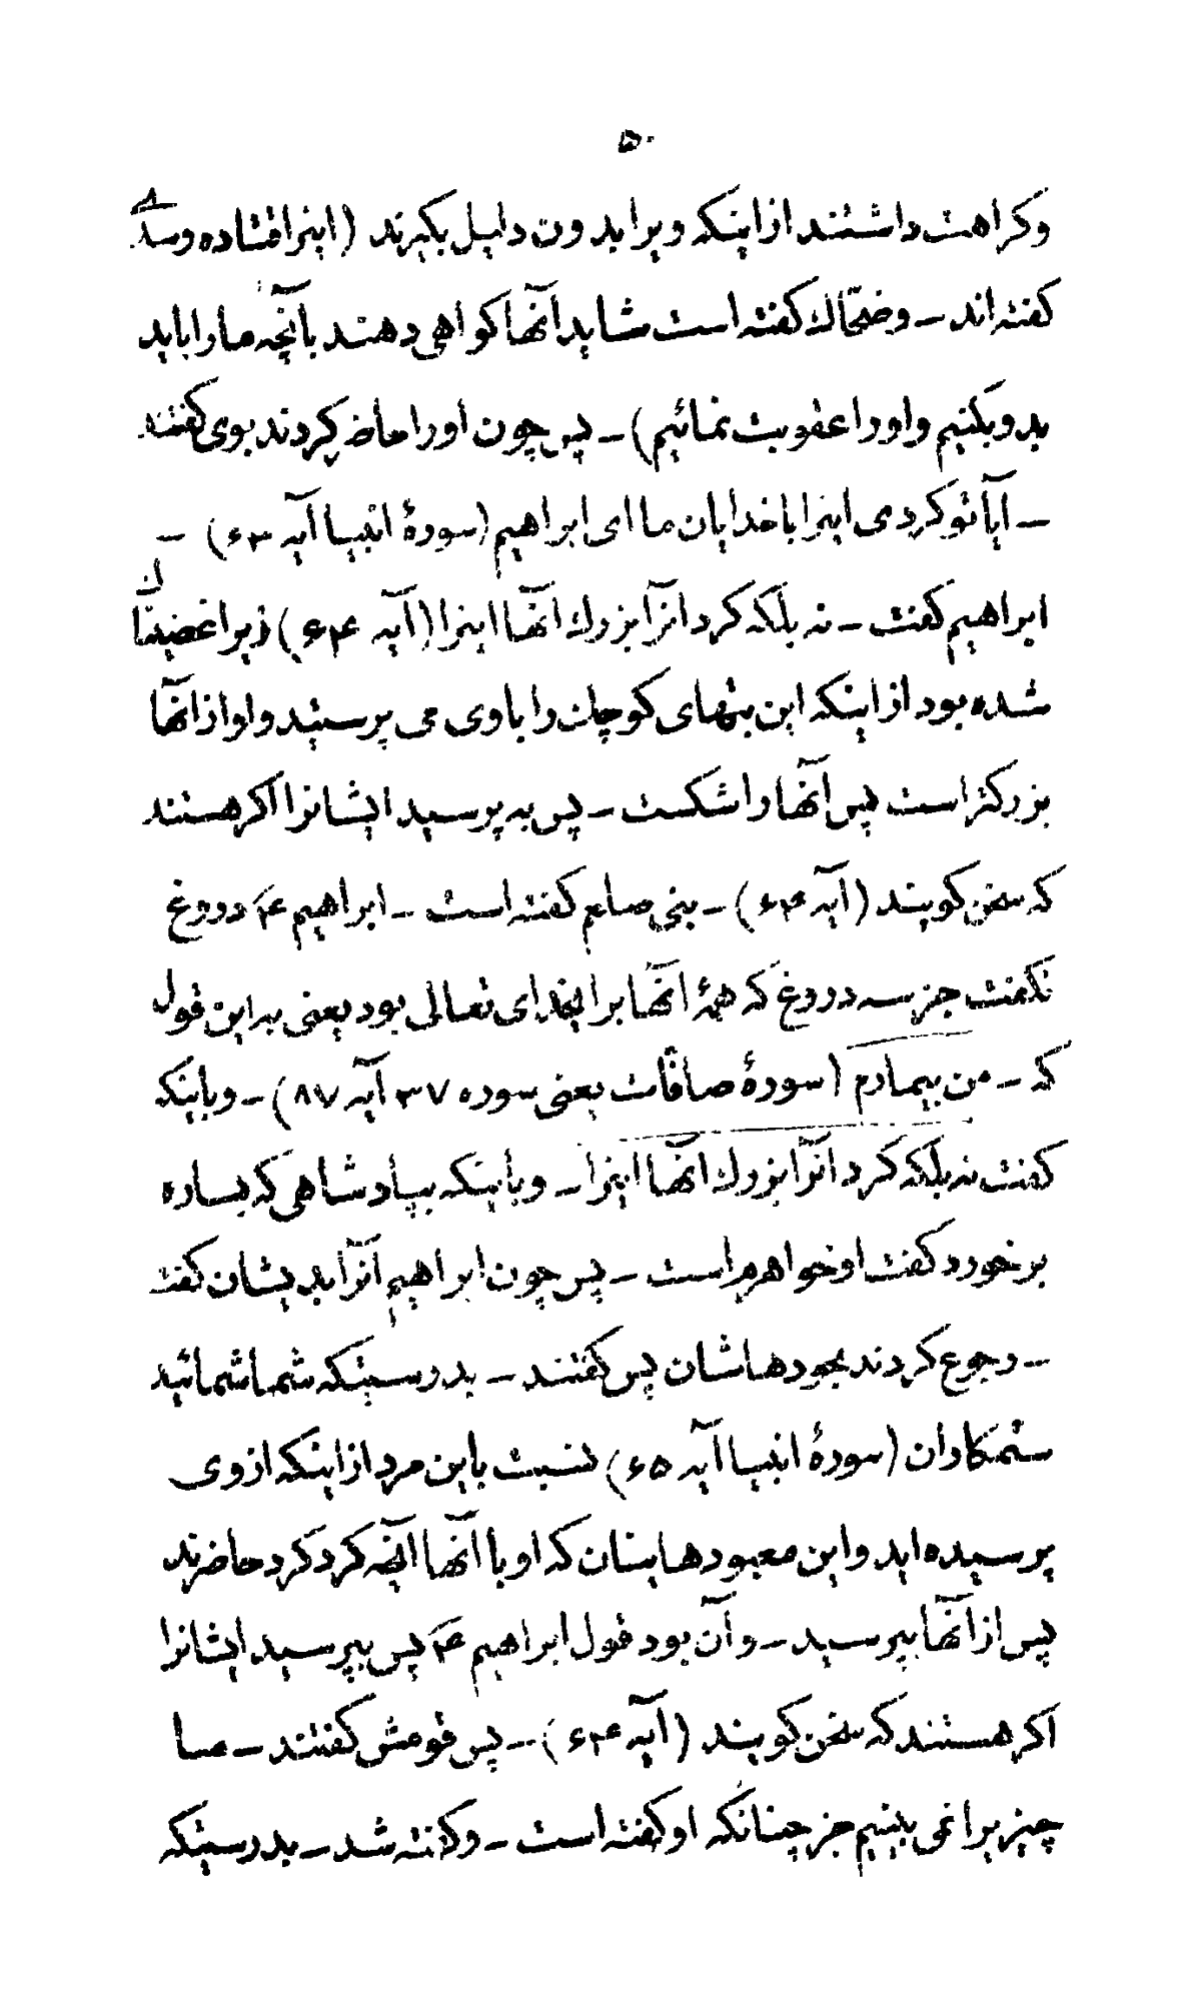 ۵۰
و کراهت داشتند از اینکه ویرا بدون دلیل بگیرند (اینرا قتاده و سدی
گفته‌اند ـ و ضحاك گفته است شاید آنها گواهی دهند بآنچه ما را باید
بدو بکنیم و او را عقوبت نمائیم) ـ پس چون او را حاضر کردند بوی گفتند
ـ آیا تو کردی اینرا با خدایان ما ای ابراهیم (سورهٔ انبیا آیه ۶۳) ـ
ابراهیم گفت ـ نه بلکه کرد آنرا بزرك آنها اینرا (آیه ۶۴) زیرا غضبناك
شده بود از اینکه این بتهای کوچك را با وی می پرستید و او از آنها
بزرکتر است پس آنها را شکست ـ پس به پرسید ایشانرا اکر هستند
که سخن کویند (آیه ۶۴) ـ بنی صلعم کفته است ـ ابراهیم ع دروغ
نکفت جز سه دروغ که همهٔ آنها برای خدای تعالی بود یعنی به این قول
که ـ من بیمارم (سورهٔ صافّات یعنی سوره ۳۷ آیه ۸۷) ـ و باینکه
کفت نه بلکه کرد آنرا بزرك آنها اینرا ـ و باینکه بپادشاهی که بساره
برخورد کفت او خواهرم است ـ پس چون ابراهیم آنرا بدیشان کفت
ـ رجوع کردند بخودهاشان پس کفتند ـ بدرستیکه شما شمائید
ستمکاران (سورهٔ انبیا آیه ۶۵) نسبت باین مرد از اینکه از وی
پرسیده‌اید و این معبودهایتان که او با آنها آنچه کرد کرد حاضرند
پس از آنها بپرسید ـ و آن بود قول ابراهیم ع پس بپرسید ایشانرا
اکر هستند که سخن کویند (آیه ۶۴) ـ پس قومش کفتند ـ ما
چیزیرا نمی بینیم جز چنانکه او کفته است ـ و کفته شد ـ بدرستیکه